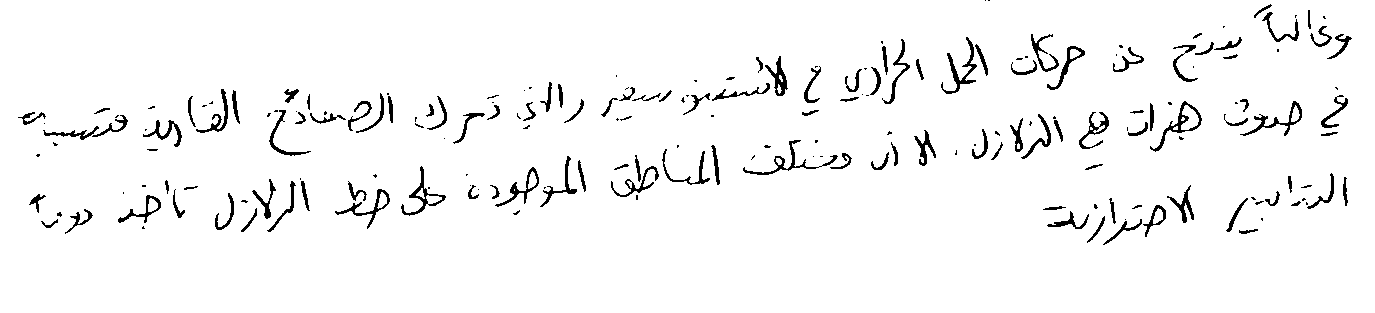 وغالباً ينتج عن حركات الحمل الحراري في الأستينوسفير والتي تحرك الصفائح القارية متسببة
في حدوث هزات هي الزلازل. الا أن مختلف المناطق الموجودة على خط الزلازل تأخذ دوماً
التدابير الاحترازية